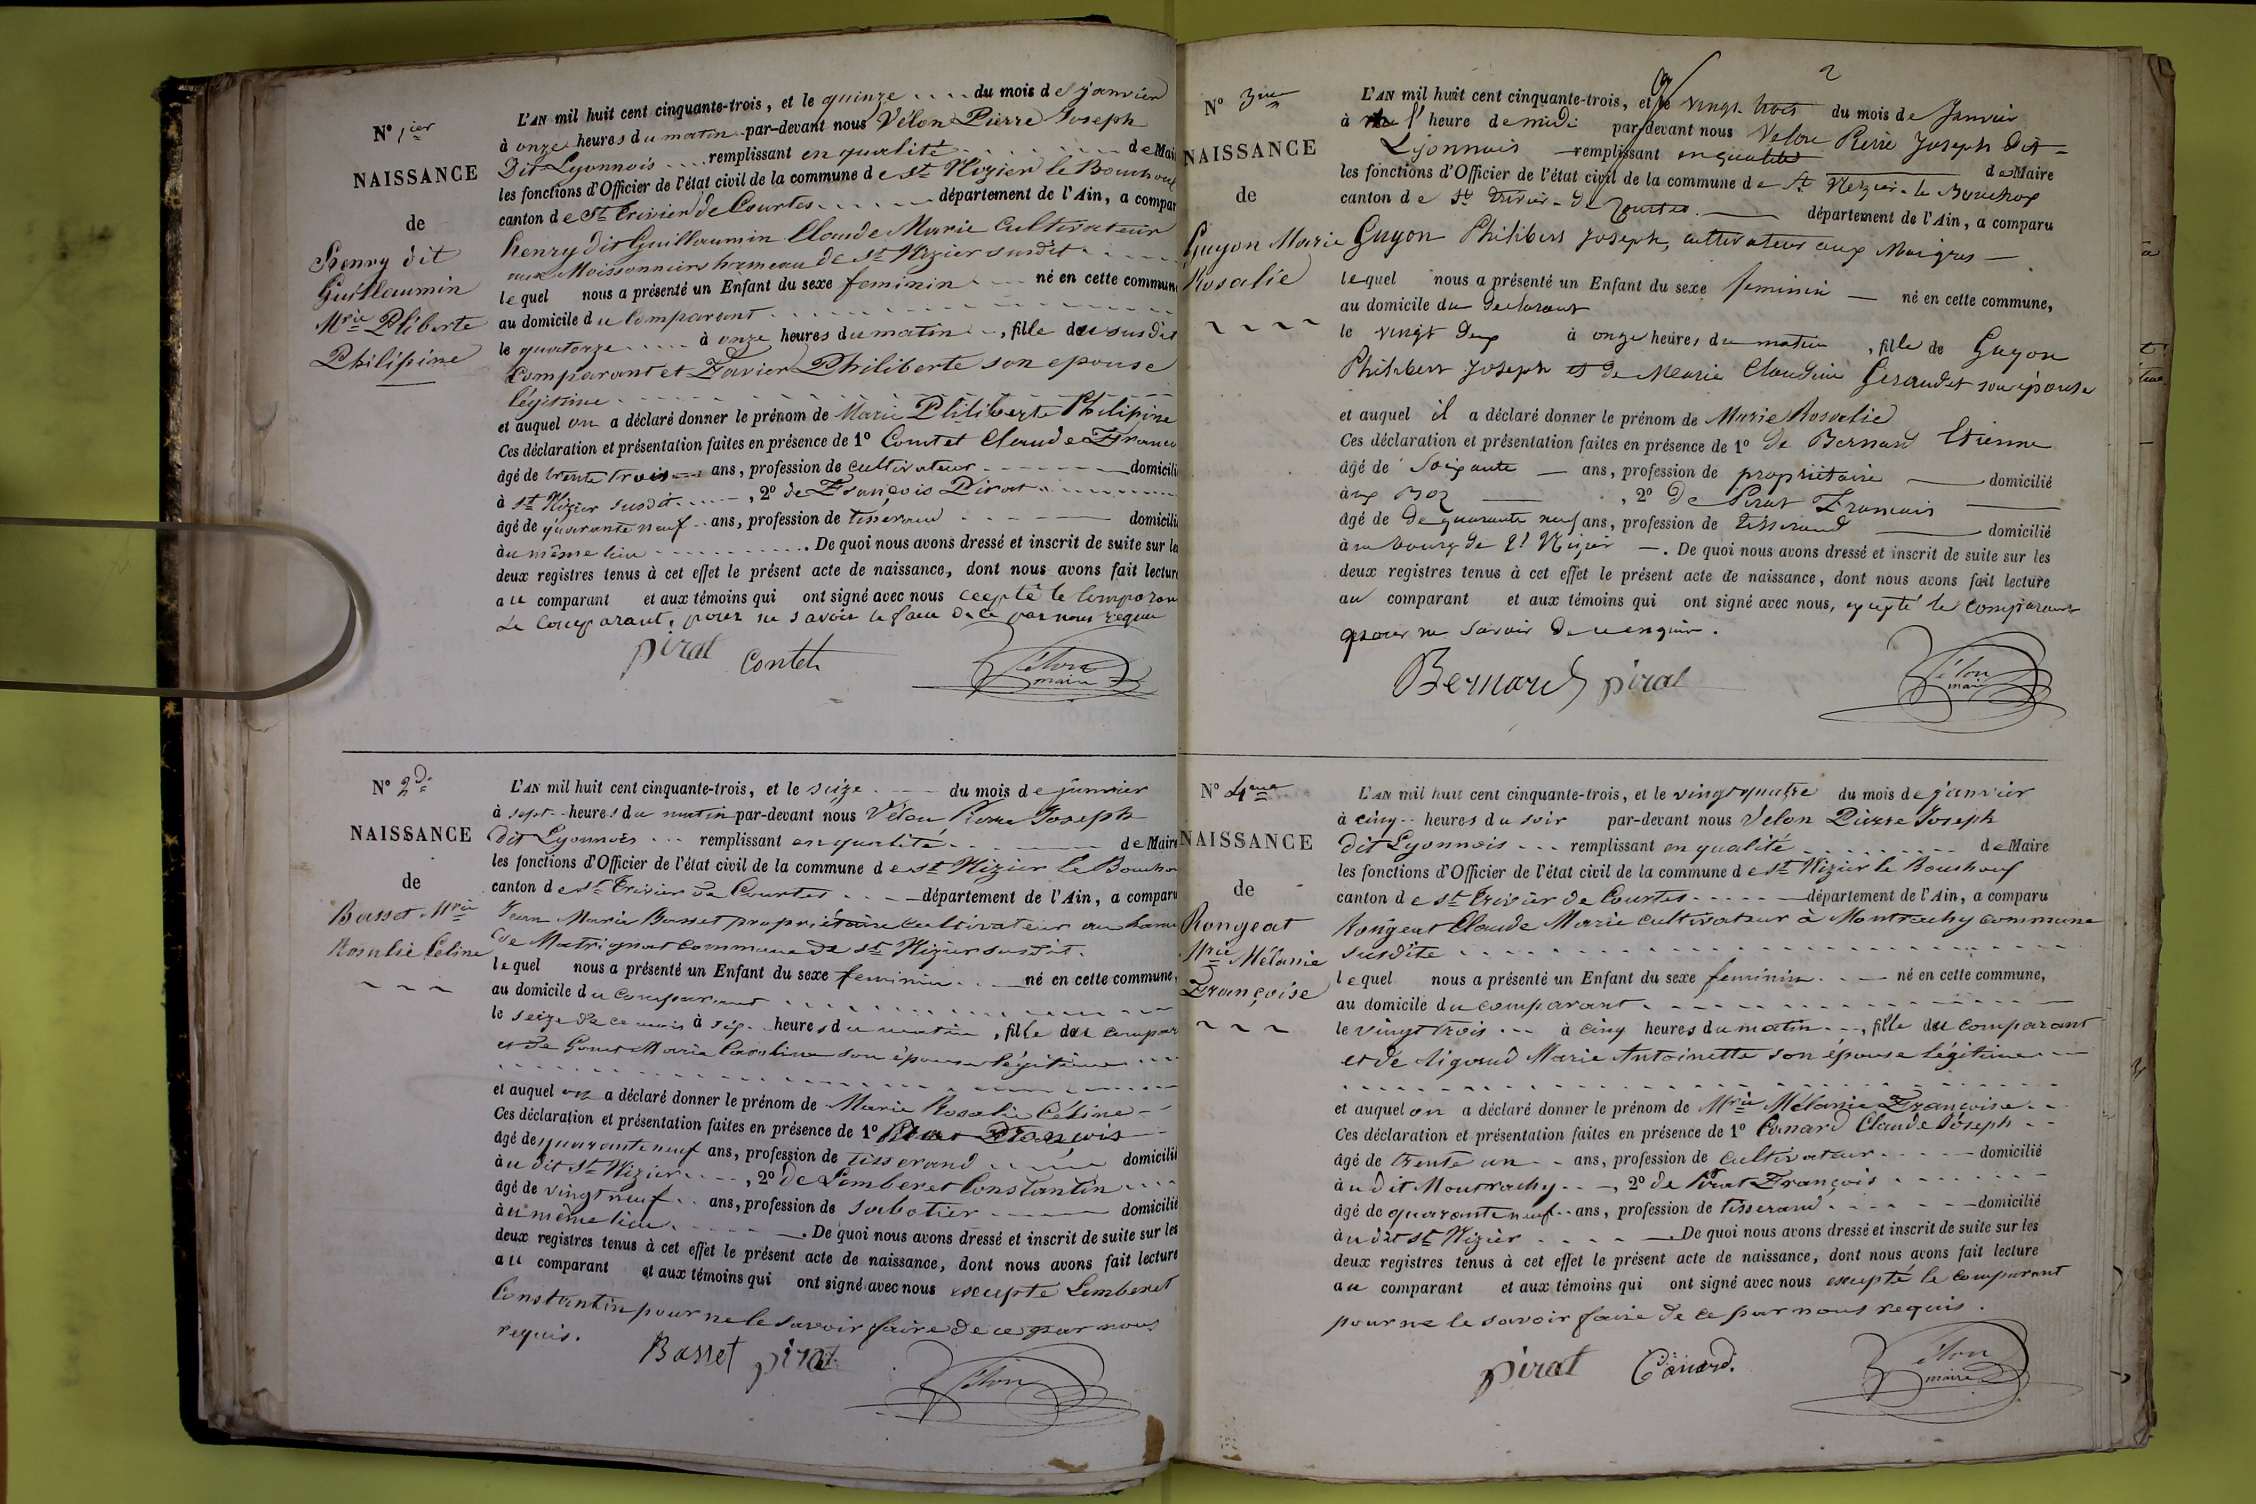 N° 1ier
NAISSANCE
de
henry dit
Guillaumin
Mrie Pliberte
Philipine
L'AN mil huit cent cinquante-trois, et le quinze du mois de janvier
à onze heures du matin par-devant nous Vélon Pierre Joseph
Dit Lyonnois remplissant en qualité de Mai
les fonctions d'Officier de l'état civil de la commune de St Nizier le Bouchoux
canton de St Trivier de Courtes département de l'Ain, a compar
henry dit Guillaumin Claude Marie Cultivateur
aux Moissonniers hameau de St Nizier susdit
lequel nous a présenté un Enfant du sexe feminin né en cette commune
au domicile du Comparant
le quatorze à onze heures du matin, fille du susdit
Comparant et Favier Philiberte son epouse
légitime
et auquel on a déclaré donner le prénom de Marie Philiberte Philipine
Ces déclaration et présentation faites en présence de 1° Comtet Claude Franco
âgé de trente trois ans, profession de cultivateur domicili
à St Nizier susdit, 2° de François Pirat
âgé de quarante neuf ans, profession de tisserand domicili
àu même lieu. De quoi nous avons dressé et inscrit de suite sur le
deux registres tenus à cet effet le présent acte de naissance, dont nous avons fait lecture
au comparant et aux témoins qui ont signé avec nous ceepté le Comparan
Le Comparant, pour ne savoir le faire de ce par nous requis
pirat Contet
Vélon
maire
N° 2d
NAISSANCE
de
Basset Mrie
Rosalie Celine
L'AN mil huit cent cinquante-trois, et le seize du mois de janvier
à sept heures du matin par-devant nous Vélon Pierre Joseph
dit Lyonnois remplissant en qualité de Maire
les fonctions d'Officier de l'état civil de la commune de St Nizier le Boucho
canton de St Trivier de Courtes département de l'Ain, a comparu
Jean Marie Basset propriétaire cultivateur au hame
de Matrignat commune de St Nizier susdit.
lequel nous a présenté un Enfant du sexe feminin né en cette commune,
au domicile du comparant
le seize de ce mois à sept heures du matin, fille du compar
et de Marie Caroline son épouse légitime
et auquel on a déclaré donner le prénom de Marie Rosalie Céline
Ces déclaration et présentation faites en présence de 1° Pirat François
âgé de quarante neuf ans, profession de tisserand domicilié
àu dit St Nizier, 2° de Lemberet Constantin
âgé de vingt neuf ans, profession de sabotier domicilié
àu même lieu. De quoi nous avons dressé et inscrit de suite sur les
deux registres tenus à cet effet le présent acte de naissance, dont nous avons fait lecture
au comparant et aux témoins qui ont signé avec nous excepté Lemberet
Constantin pour ne le savoir faire de ce par nous
requis.
Basset pirat
Vélon
2
N° 3me
NAISSANCE
de
Guyon Marie
Rosalie
L'AN mil huit cent cinquante-trois, et le vingt trois du mois de Janvier
à l'heure de midi par-devant nous Velon Pierre Joseph Dit
Lyonnais remplissant en qualité de Maire
les fonctions d'Officier de l'état civil de la commune de St Nizier le Bouchox
canton de St Trivier de Courtes département de l'Ain, a comparu
Guyon Philibert Joseph, cultivateur aux Maigres
lequel nous a présenté un Enfant du sexe feminin né en cette commune,
au domicile du declarant
le vingt deux à onze heures du matin, fille de Guyon
Philibert Joseph et de Marie Claudine Geraudet son épouse
et auquel il a déclaré donner le prénom de Marie Rosalie
Ces déclaration et présentation faites en présence de 1° de Bernard Etienne
âgé de Soixante ans, profession de propriétaire domicilié
àux Boz, 2° de Pirat Francois
âgé de De quarante neuf ans, profession de tisserand domicilié
àu bourg de St Nizier. De quoi nous avons dressé et inscrit de suite sur les
deux registres tenus à cet effet le présent acte de naissance, dont nous avons fait lecture
au comparant et aux témoins qui ont signé avec nous, excepté le comparant
pour ne savoir de ce enquis.
Bernard pirat
Vélon
maire
N° 4me
NAISSANCE
de
Rongeat
Mrie Mélanie
Françoise
L'AN mil huit cent cinquante-trois, et le vingt quatre du mois de janvier
à cinq heures du soir par-devant nous Velon Pierre Joseph
dit Lyonnois remplissant en qualité de Maire
les fonctions d'Officier de l'état civil de la commune de St Nizier le Bouchoux
canton de St Trivier de Courtes département de l'Ain, a comparu
Rongeat Claude Marie cultivateur à Montrachy commune
susdite
lequel nous a présenté un Enfant du sexe feminin né en cette commune,
au domicile du comparant
le vingt trois à cinq heures du matin, fille du comparant
et de Rigaud Marie Antoinette son épouse légitime
et auquel on a déclaré donner le prénom de Mrie Mélanie Françoise
Ces déclaration et présentation faites en présence de 1° Canard Claude Joseph
âgé de trente un ans, profession de cultivateur domicilié
àu dit Montrachy, 2° de Pirat François
âgé de quarante neuf ans, profession de tisserand domicilié
àu dit St Nizier. De quoi nous avons dressé et inscrit de suite sur les
deux registres tenus à cet effet le présent acte de naissance, dont nous avons fait lecture
au comparant et aux témoins qui ont signé avec nous excepté le comparant
pour ne le savoir faire de ce par nous requis.
pirat Canard.
Vélon
maire